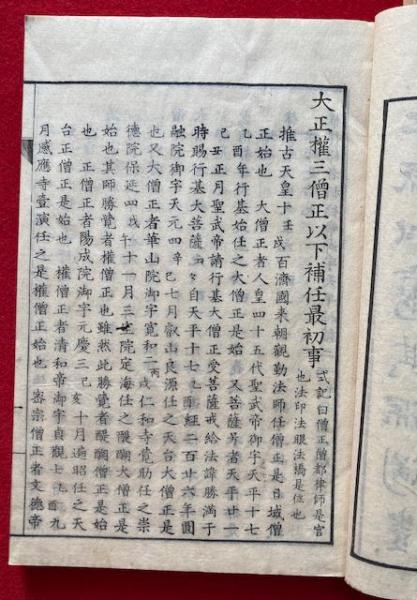 大正權三僧正以下補任最初事
式記曰僧正僧都律師是官
也法印法眼法橋是位也
推古天皇十壬戌百濟國来朝觀勤法師任僧正是日域僧
正始也　大僧正者人皇四十五代聖武帝御宇天平十七
乙酉年行基始任之大僧正是始　又菩薩号者天平廿一
己丑正月聖武帝請行基大僧正受菩薩戒給法諱勝満于
時賜行基大菩薩　自天平十七乙酉經二百廿六年圓
融院御宇天元四辛巳七月叡山良源任之天台大僧正是
也又大僧正者華山院御宇寛和二丙戌仁和寺寛助任之崇
德院保延四戊午十一月三宝院定海任之醍醐大僧正是
始也其師勝覺者權僧正也雖然此勝覺者醍醐僧正是始
也　正僧正者陽成院御宇元慶三己亥十月遍昭任之天
台正僧正是始也　權僧正者清和帝御宇貞觀七乙酉九
月感應寺壹演任之是權僧正始也　密宗僧正者文德帝